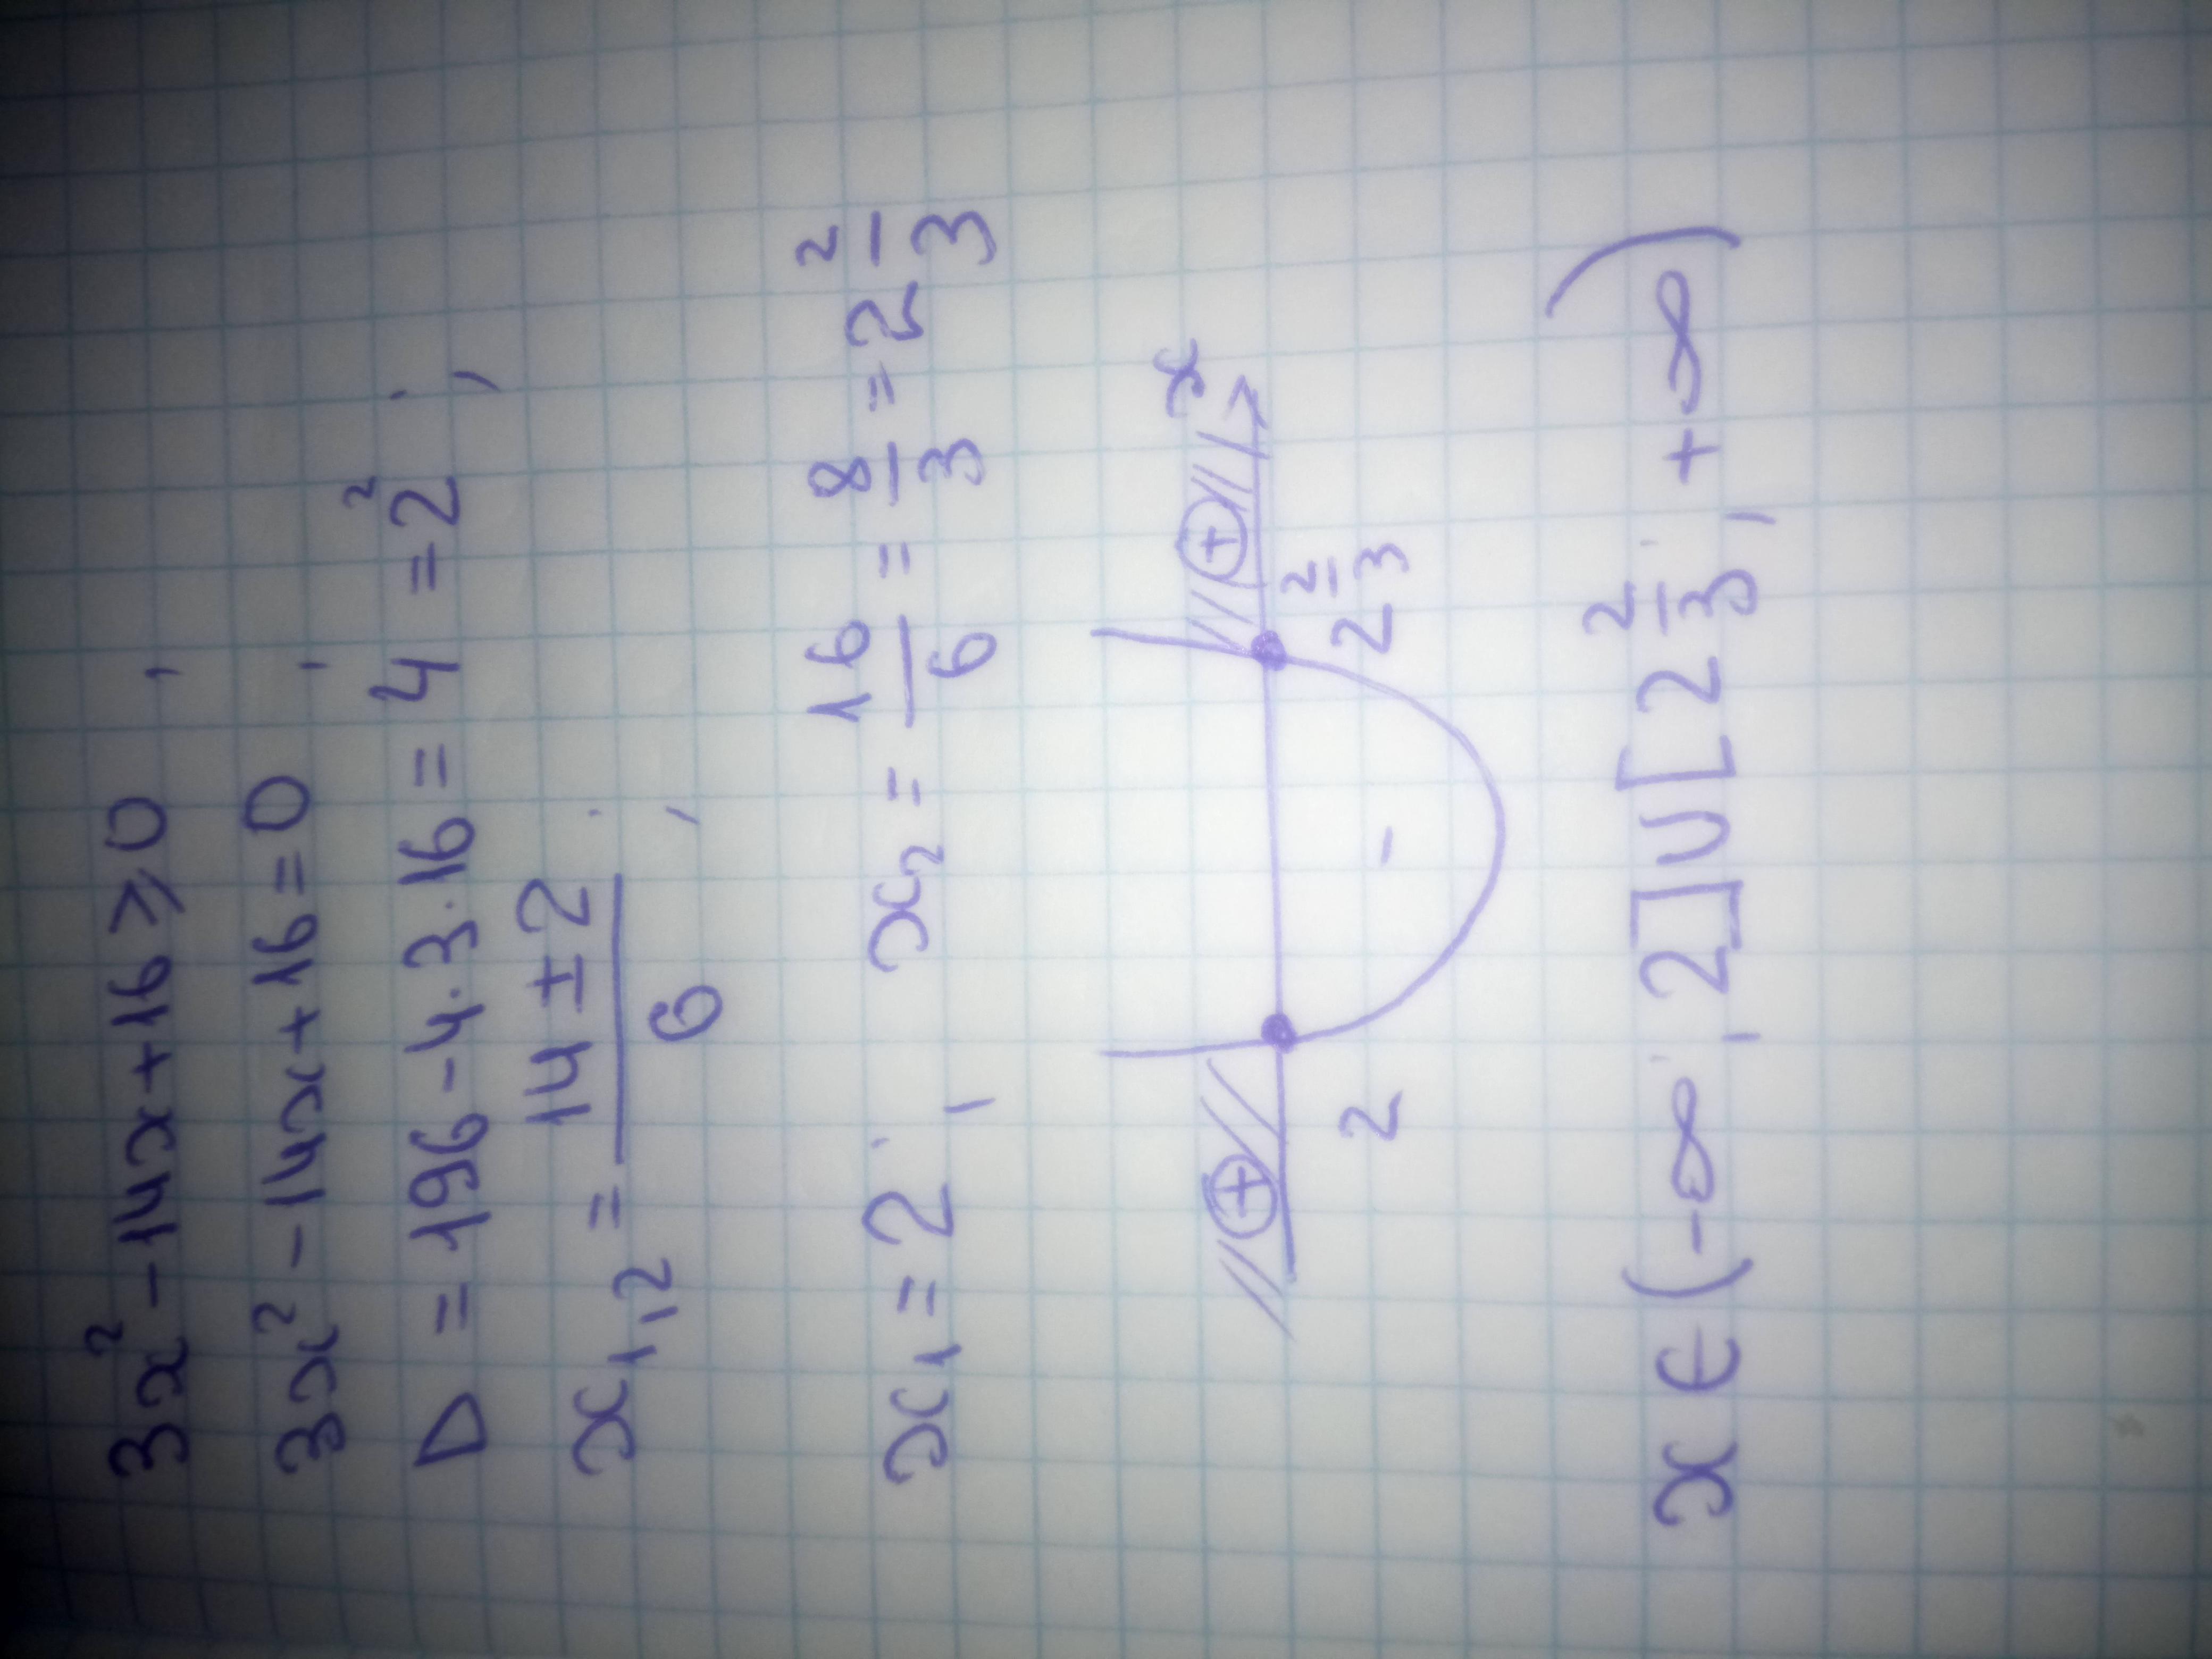 3x² - 14x + 16 ≥ 0,
3x² - 14x + 16 = 0,
D = 196 - 4·3·16 = 4 = 2²;
x₁,₂ = (14 ± 2)/6;
x₁ = 2; x₂ = 16/6 = 8/3 = 2 2/3
+ + x
2 - 2 2/3
x ∈ (-∞; 2] ∪ [2 2/3; +∞)